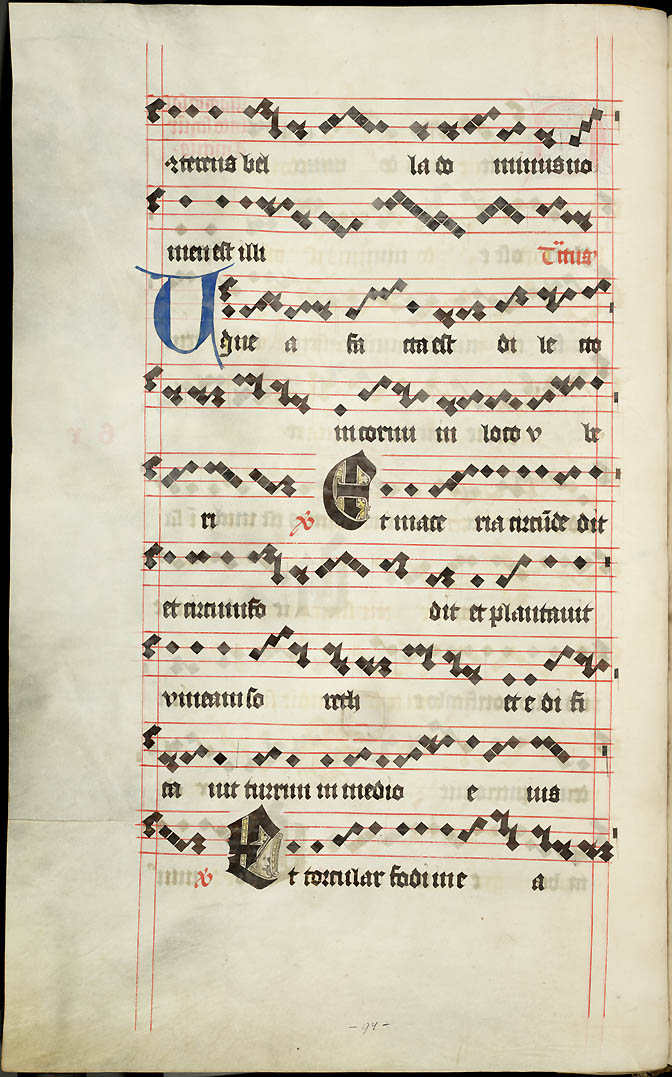 ꝯterens bel la do minus no
men est illi
Vyne a fa cta est di le cto
in cornu in loco v be
ri ℣ Et mace ria circūde dit
et circumfo dit et plantauit
vineam so rech et e di fi
ca uit turrim in medio e ius
℣ Et torcular fodi in e a
- 94 -